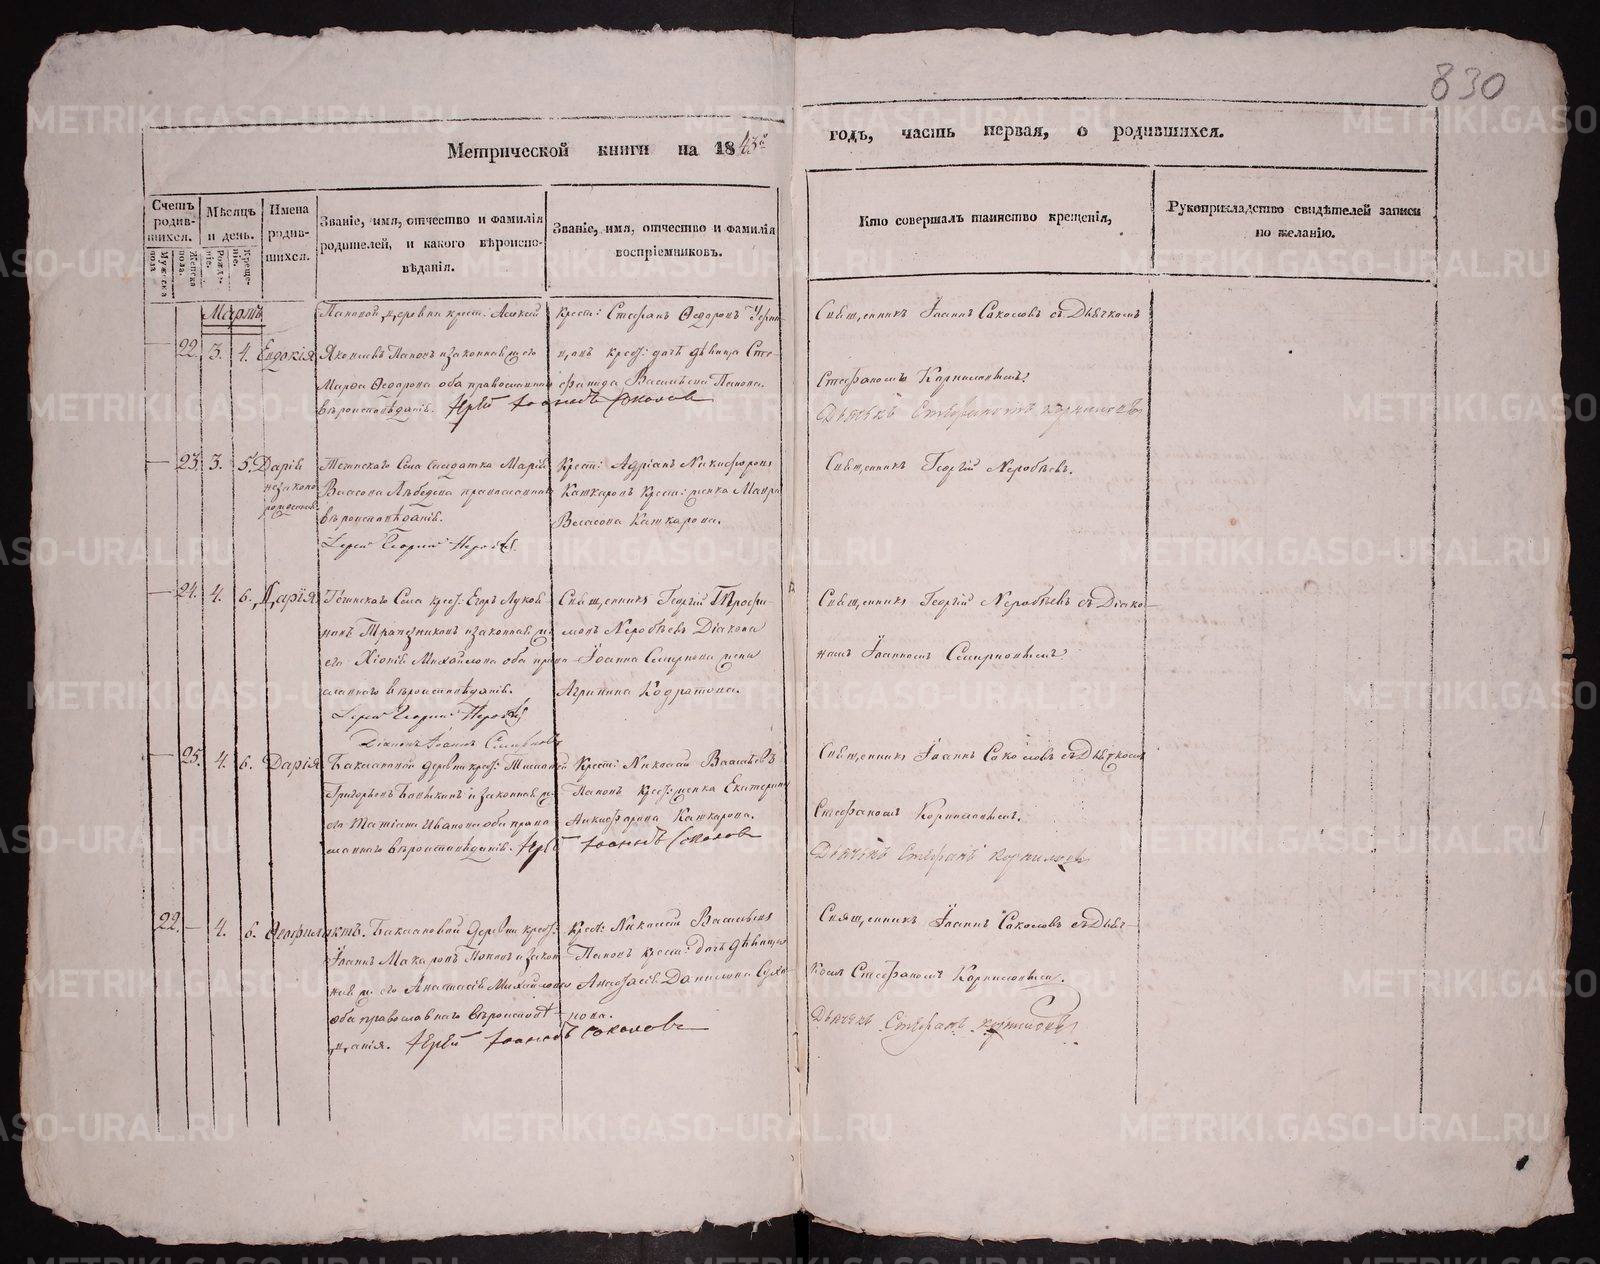 830
Метрической книги на 1843й
годъ, часть первая, о родившихся.
Счетъ родившихся.
Мужеска пола
Женска пола.
Мѣсяцъ и день.
Рожденіе.
Крещеніе.
Имена родившихся.
Званіе, имя, отчество и фамилія родителей, и какого вѣроисповѣданія.
Званіе, имя, отчество и фамилія воспріемниковъ.
Кто совершалъ таинство крещенія,
Рукоприкладство свидѣтелей записи по желанію.
Мартъ
22. 3. 4. Евдокія
деревни крест: Алексѣй
Яковлевъ Паповъ и законная ж: его
Марѳа Ѳедорова оба православнаго
вѣроисповѣданія. Іерей Іоаннъ Соколовъ
Крест: Стефанъ Ѳедоровъ
крест: дочь дѣвица
Васильева Папова.
Священникъ Іоаннъ Соколовъ съ Дьячкомъ
Стефаномъ Корниловымъ.
Дьячекъ Стефанъ Корниловъ
23. 3. 5. Дарія
незаконнорожденная
Села солдатка Марія
Власова Лебедева православнаго
вѣроисповѣданія.
Іерей Георгий
Крест: Адріанъ Никифоровъ
Кашкаровъ крест: женка Мавра
Власова Кашкарова.
Священникъ Георгій
24. 4. 6. Дарія
Села крест: Егоръ
Трапезниковъ и законная ж:
его Хіонія Михайлова оба право
славнаго вѣроисповѣданія.
Іерей Георгий
Діаконъ Іоаннъ Смирновъ
Священникъ Георгій
Діакона
Іоанна Смирнова жена
Агрипина Кодратова.
Священникъ Георгій съ Діако-
номъ Іоанномъ Смирновымъ
25. 4. 6. Дарія
Баклановой деревни крест:
Григорьевъ и законная ж:
его Татіана Иванова оба право
славнаго вѣроисповѣданія. Іерей Іоаннъ Соколовъ
Крест: Николай Васильевъ
Паповъ крест: женка Екатерина
Никифорова Кашкарова.
Священникъ Іоаннъ Соколовъ съ Дьячкомъ
Стефаномъ Корниловымъ.
Дьячекъ Стефанъ Корниловъ
22. 4. 6. Ѳеофилактъ.
Баклановой деревни крест:
Іоаннъ Макаровъ Поповъ и закон
ная ж: его Анастасія Михайлова
оба православнаго вѣроисповѣ-
данія. Іерей Іоаннъ Соколовъ
Крест: Николай Васильевъ
Паповъ крест: дочь дѣвица
Анастасія Данилова
Священникъ Іоаннъ Соколовъ съ Дьяч-
комъ Стефаномъ Корниловымъ.
Дьячекъ Стефанъ Корниловъ